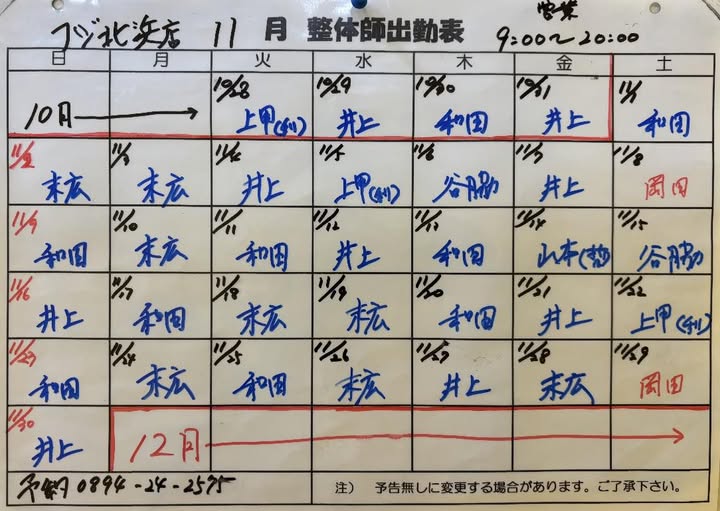 営業
フジ北浜店 11月 整体師出勤表 9:00〜20:00
日 月 火 水 木 金 土
10月 → 10/28 10/29 10/30 10/31 11/1
上甲(利) 井上 和田 井上 和田
11/2 11/3 11/4 11/5 11/6 11/7 11/8
末広 末広 井上 上甲(利) 谷脇 井上 岡田
11/9 11/10 11/11 11/12 11/13 11/14 11/15
和田 末広 和田 井上 和田 山本 谷脇
11/16 11/17 11/18 11/19 11/20 11/21 11/22
井上 和田 末広 末広 和田 井上 上甲(利)
11/23 11/24 11/25 11/26 11/27 11/28 11/29
和田 末広 和田 末広 井上 末広 岡田
11/30
井上 12月 →
予約 0894-24-2575 注） 予告無しに変更する場合があります。ご了承下さい。